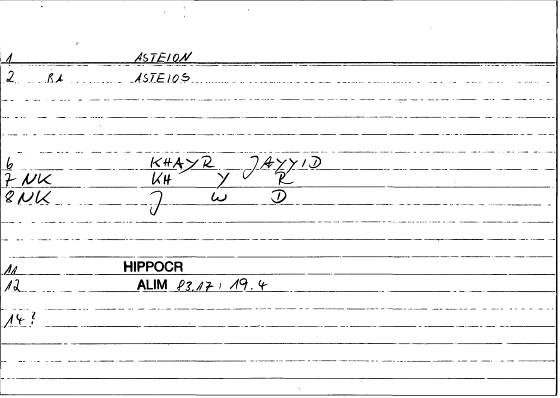 1 ASTEION
2 RA ASTEIOS
6 KHAYR JAYYID
7 NK KH Y R
8 NK J W D
11 HIPPOCR
12 ALIM 83.17; 19.4
14?